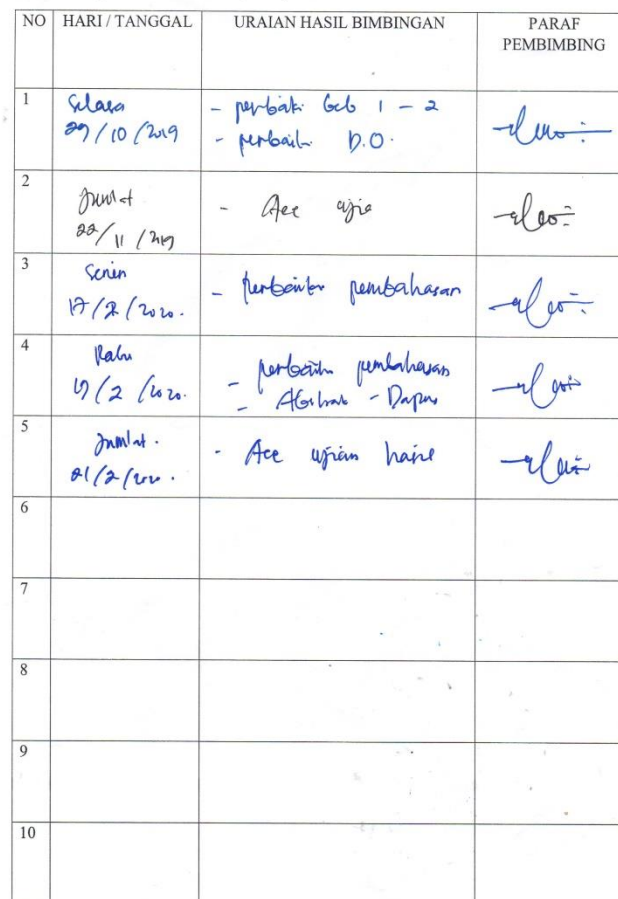 NO HARI / TANGGAL URAIAN HASIL BIMBINGAN PARAF PEMBIMBING
1 Selasa
29/10/2019
- perbaiki bab 1 - 2
- perbaiki D.O.
2 Jum'at
22/11/2019
- Acc ujian
3 Senin
17/2/2020.
- perbaiki pembahasan
4 Rabu
19/2/2020.
- perbaiki pembahasan
- Abstrak - Dapus
5 Jum'at.
21/2/2020.
- Acc ujian hasil
6
7
8
9
10